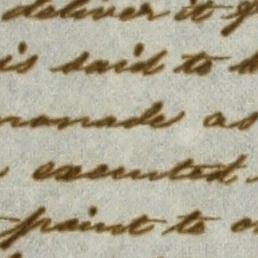 deliver it
is said to
as
executed
paint to